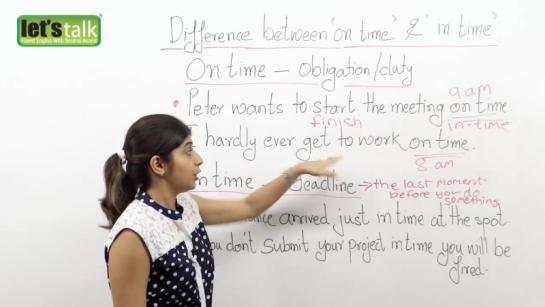 let's talk
Fluent English With Neutral Accent
Difference between 'on time' & 'in time'
On time – Obligation/duty
9.am
• Peter wants to start the meeting on time.
finish
in-time
I hardly ever get to work on time.
8.am
In time – deadline → the last moment
before you do
something
arrived just in time at the spot.
you don't Submit your project in time you will be
fired.